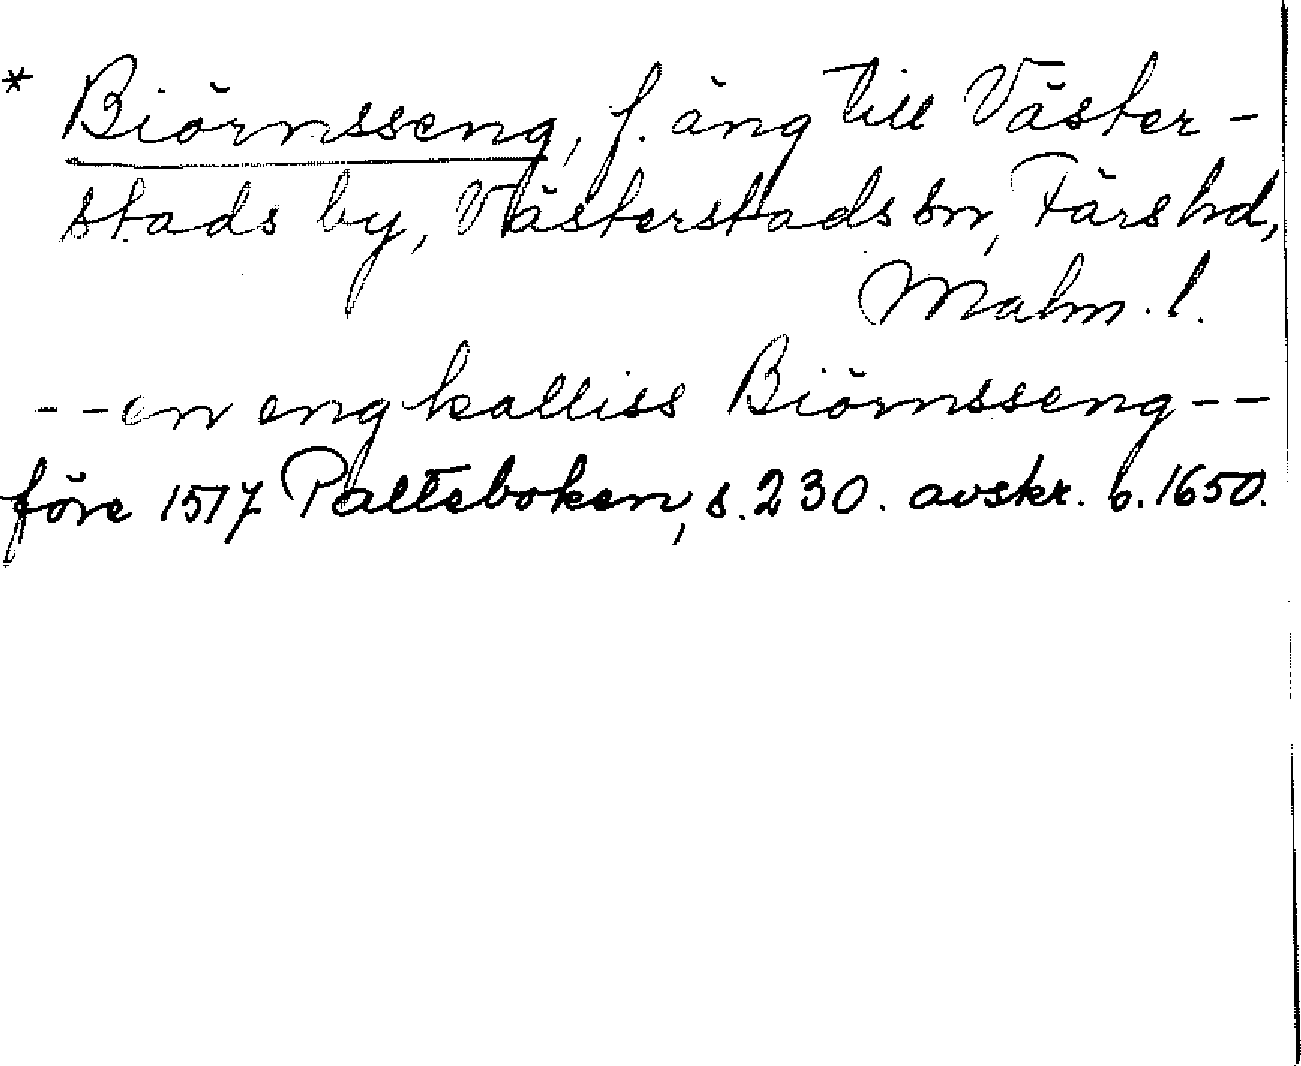 * Biörnsseng, f. äng till Väster-
stads by, Västerstads sn, Färs hd,
Malm. l.
--en eng kalliss Biörnsseng--
före 1517 Palteboken, s. 230. avskr. b. 1650.